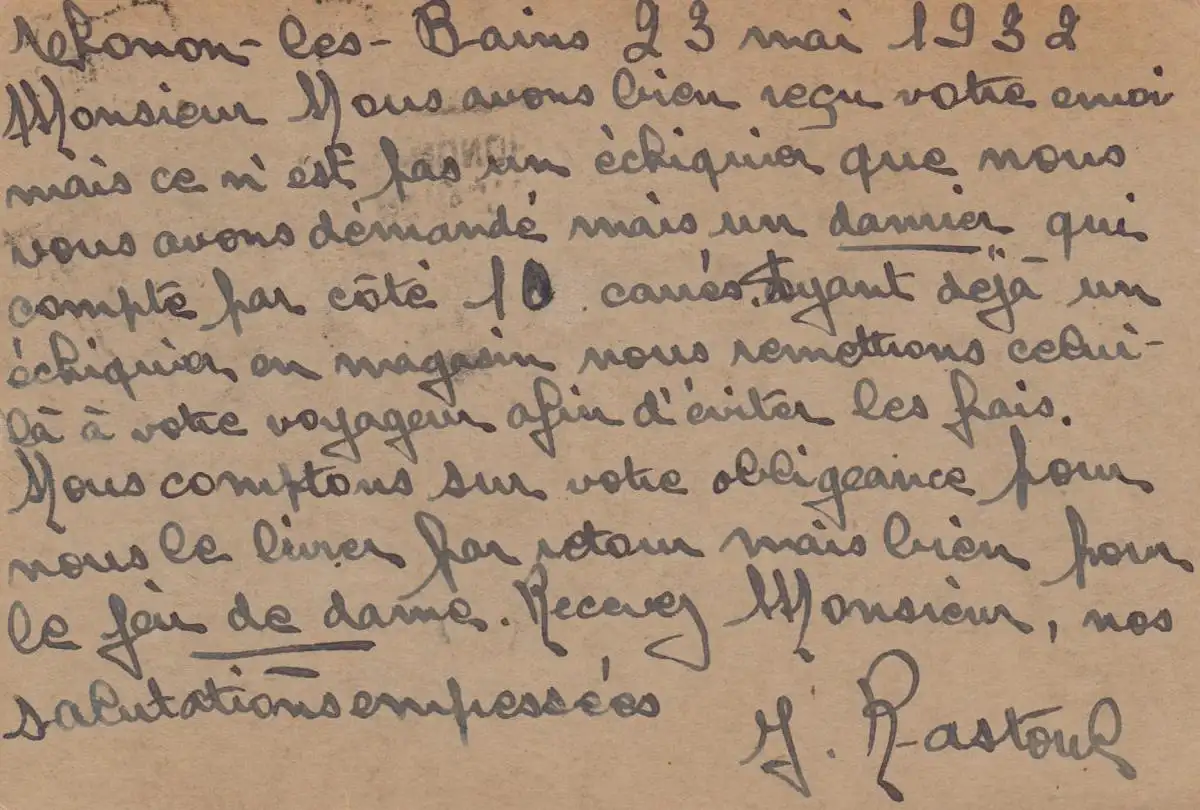 Thonon-les-Bains 23 mai 1932
Monsieur Nous avons bien reçu votre envoi
mais ce n'est pas un échiquier que nous
vous avons démandé mais un damier qui
compte par côté 10 carrés. Ayant déjà un
échiquier en magasin nous remettrons celui-
là à votre voyageur afin d'éviter les frais.
Nous comptons sur votre obligeance pour
nous le livrer par retour mais bien pour
le jeu de dame. Recevez Monsieur, nos
salutations empressées
J. Rastoul